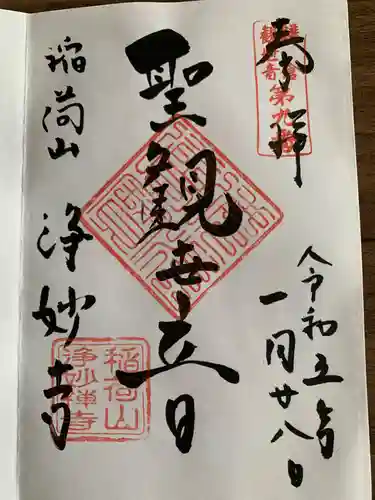 奉拝
鎌倉観世音第九番
令和五年
一月廿八日
聖観世音
稲荷山
浄妙寺
稲荷山
浄妙禅寺